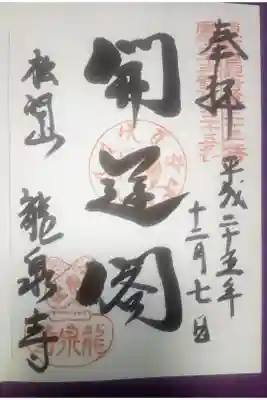 奉拝
平成二十五年
十二月七日
開運閣
松洞山 龍泉寺
龍泉寺